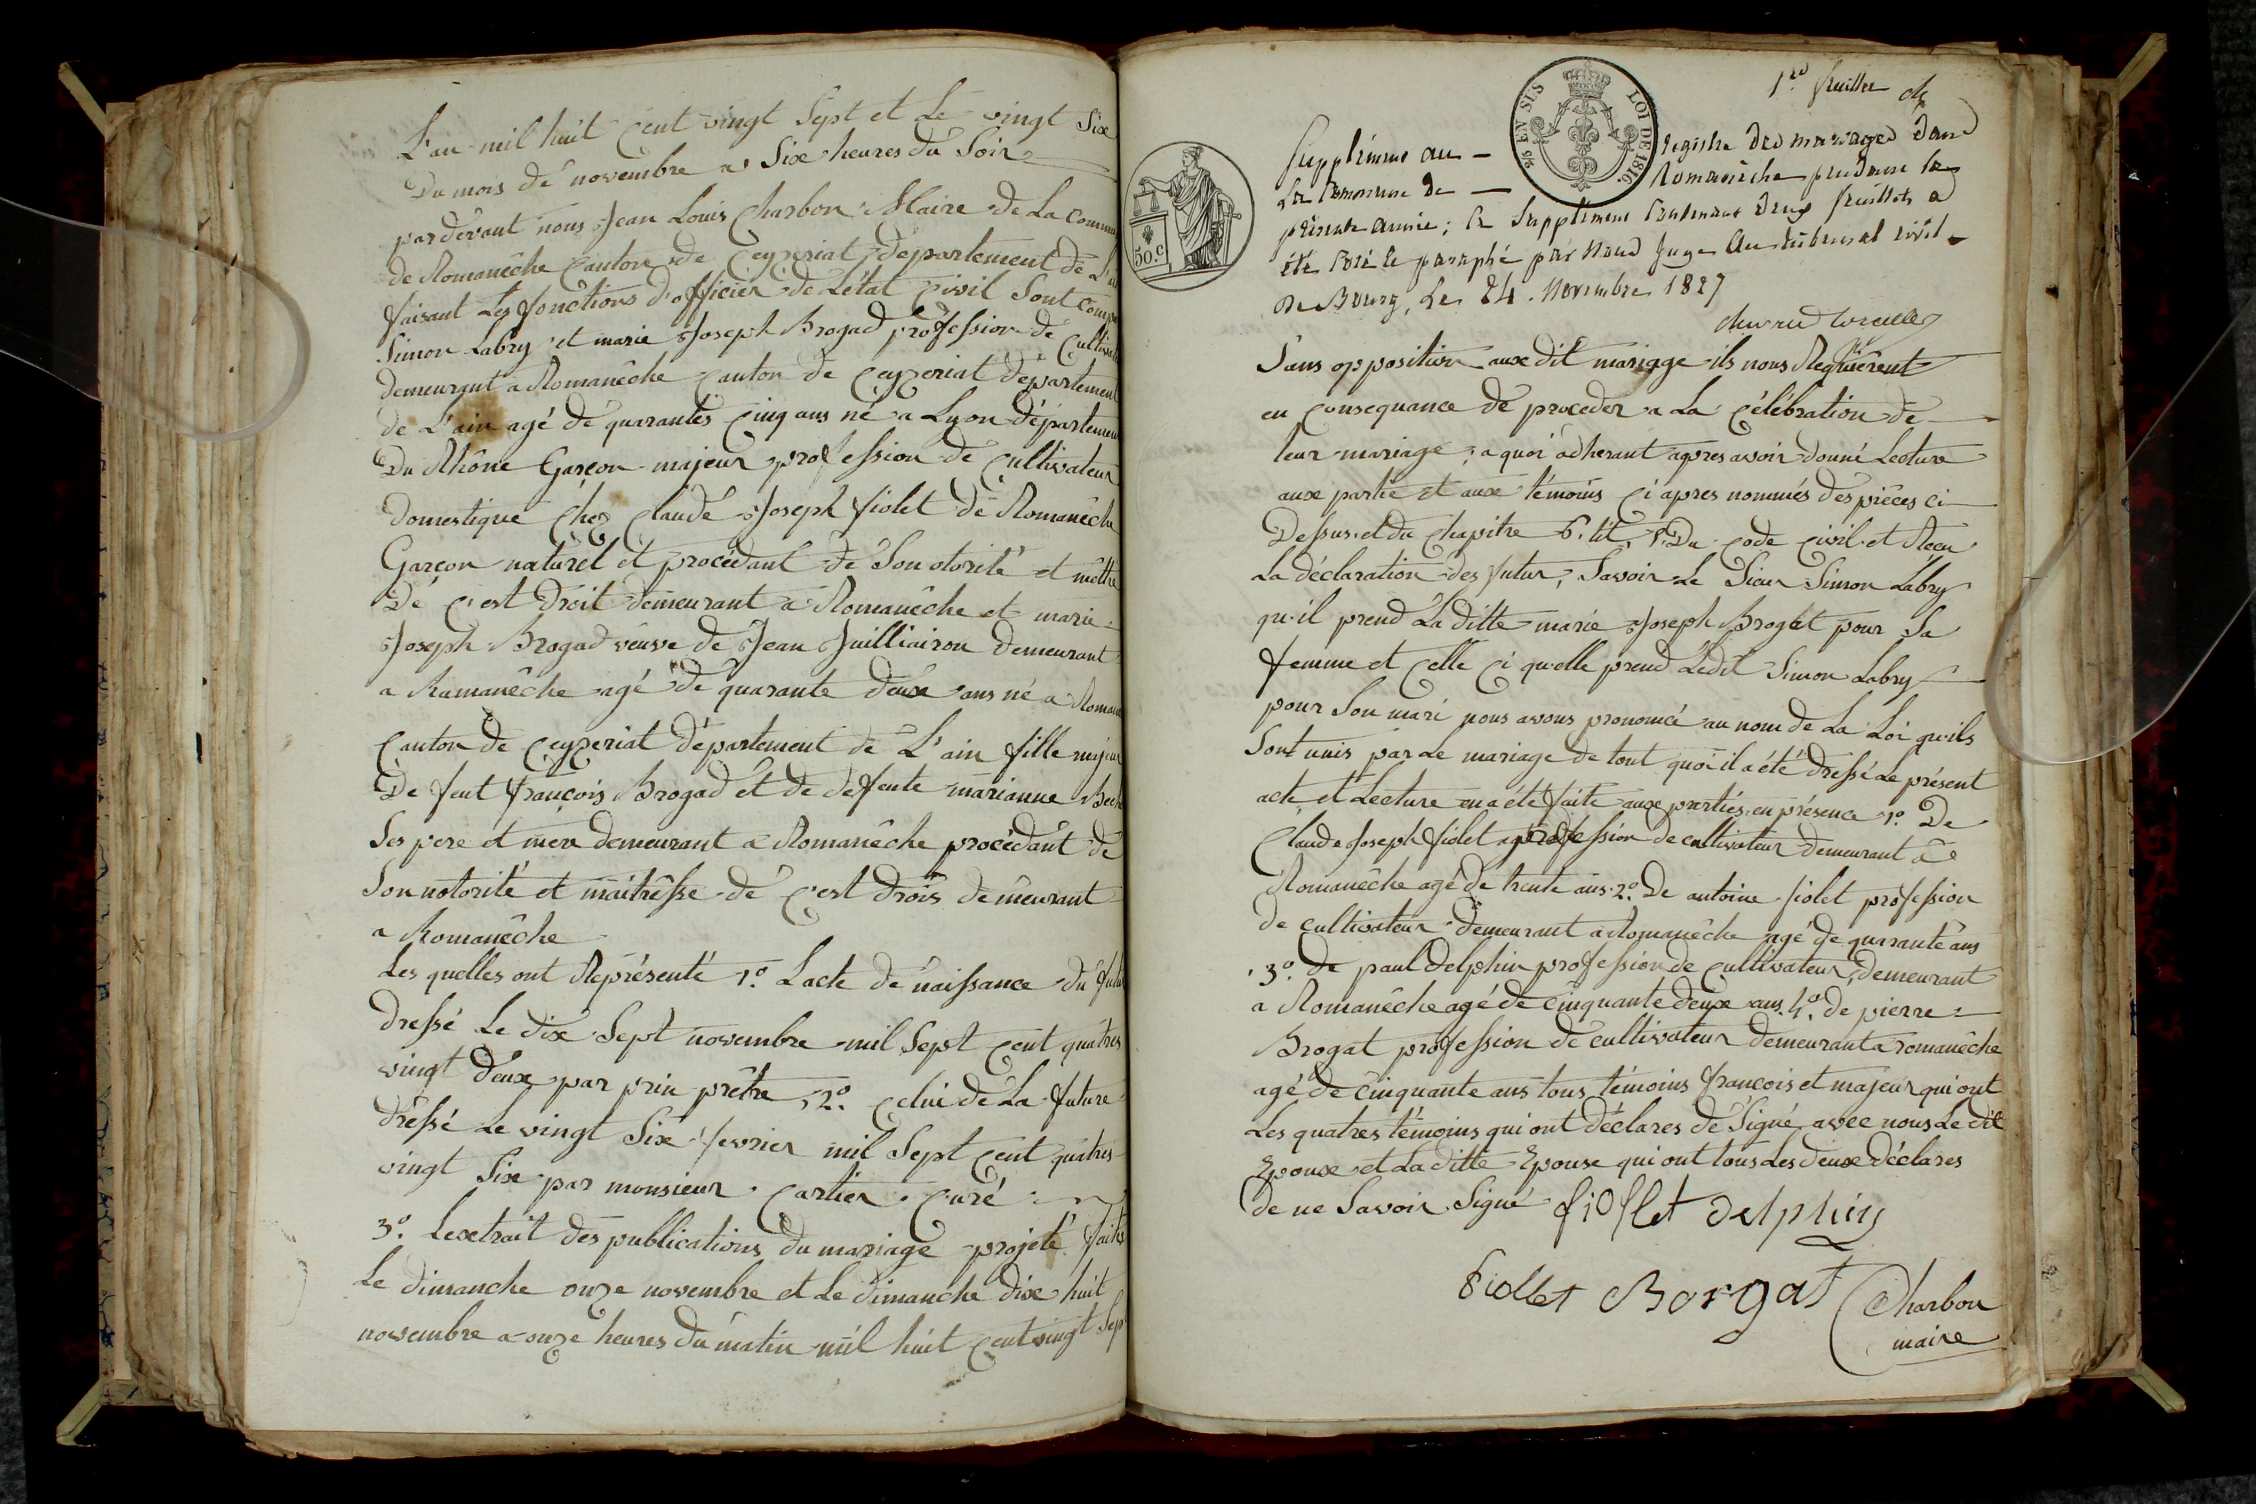 L'an mil huit cent vingt Sept et Le vingt Six
Du mois dé novembre a Six heures du Soir
par dévant nous Jean Louis Charbon Maire de La Commu
de Romanêche Canton de Ceyzeriat département de L'ai
faisant Les fonctions d'officier de L'état Civil Sont comp
Simon Labry et marie Joseph Brogad profession de Cultivat
demeurant a Romanêche Canton de Ceyzeriat département
de L'ain agé de quarantes Cinq ans né a Lyon départemen
Du Rhône Garçon majeur profession de Cultivateur
Domestique Chez Claude Joseph fiolet de Romanêche
Garçon naturel et procédant de Son otorité et mêttre
Dé C'est Droit demeurant a Romanêche et marie
Joseph Brogad veuve de Jean Juilliairon Demeurant
a Rumanêche agé de quarante deux ans né a Roman
Canton de Ceyzeriat département de L'ain fille majeu
De feut françois Brogad et de defente marianne
Ses pere et mere demeurant a Romanêche procédant de
Son notorité et maitresse dé C'est Drois demeurant
a Romanêche
Les quelles ont Représenté 1.º Lacte de naissance du futu
dressé Le dix Sept novembre mil Sept Cent quatres
vingt deux par prin prêtre, 2.º Celui de La future
dressé Le vingt Six fevrier mil Sept Cent quatres
vingt Six par monsieur Cartier Curé
3.º Lextrait des publications du mariage projeté faites
Le dimanche onze novembre et Le dimanche dix huit
novembre a onze heures du matin mil huit Cent vingt Sep
1er feuillet de
EN SUS LOI DE 1816.
50.C
Supplément au registre des mariages dans
La Commune de Romanèche pendant la
présente année; Ce Supplément Contenant deux feuillets a
été Coté et paraphé par Nous Juge Au tribunal civil
De Bourg, Le 24 Novembre 1827
Sans opposition aux dit mariage ils nous Requièrent
en Consequance de proceder a La Célébration de
leur mariage, a quoi adherant apres avoir donné Lecture
aux partie et aux témoins Ci apres nommés des pièces ci
Dessus et du Chapitre 6. tit. 5. Du Code Civil et Recu
La déclaration des futur, Savoir Le Sieur Simon Labry
qu'il prend La ditte marie Joseph Brogat pour Sa
femme et Celle Ci qu'elle prend Ledit Simon Labry
pour Son mari nous avons prononcé au nom de La Loi qu'ils
Sont unis par Le mariage de tout quoi il a été dressé Le présent
acte et Lecture en a été faite aux parties en présence 1.º De
Claude Joseph fiolet profession de cultivateur demeurant a
Romanêche agé de trente ans 2.º De antoine fiolet profession
de cultivateur demeurant a Romanêche agé de quarante ans
3.º De paul Delphin profession de Cultivateur, demeurant
a Romanêche agé de cinquante deux ans. 4.º de pierre
Brogat profession de cultivateur demeurant a romanêche
agé de cinquante ans tous témoins françois et majeur qui ont
Les quatres témoins qui ont déclares de Signé avec nous Le dit
Epoux et La ditte Epouse qui ont tous Les deux déclares
de ne Savoir Signé fiollet delphin
fiollet Borgat Charbon
maire